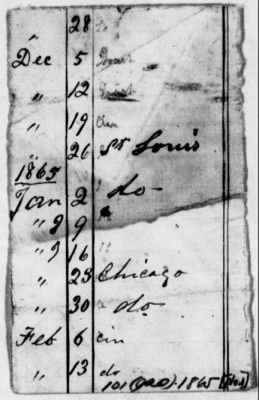 " 28
Dec 5
" 12
" 19 Cin
" 26 St Louis
1865
Jan 2 do
" 9
" 16 "
" 23 Chicago
" 30 do
Feb 6 cin
" 13 do
101 (940). 1865